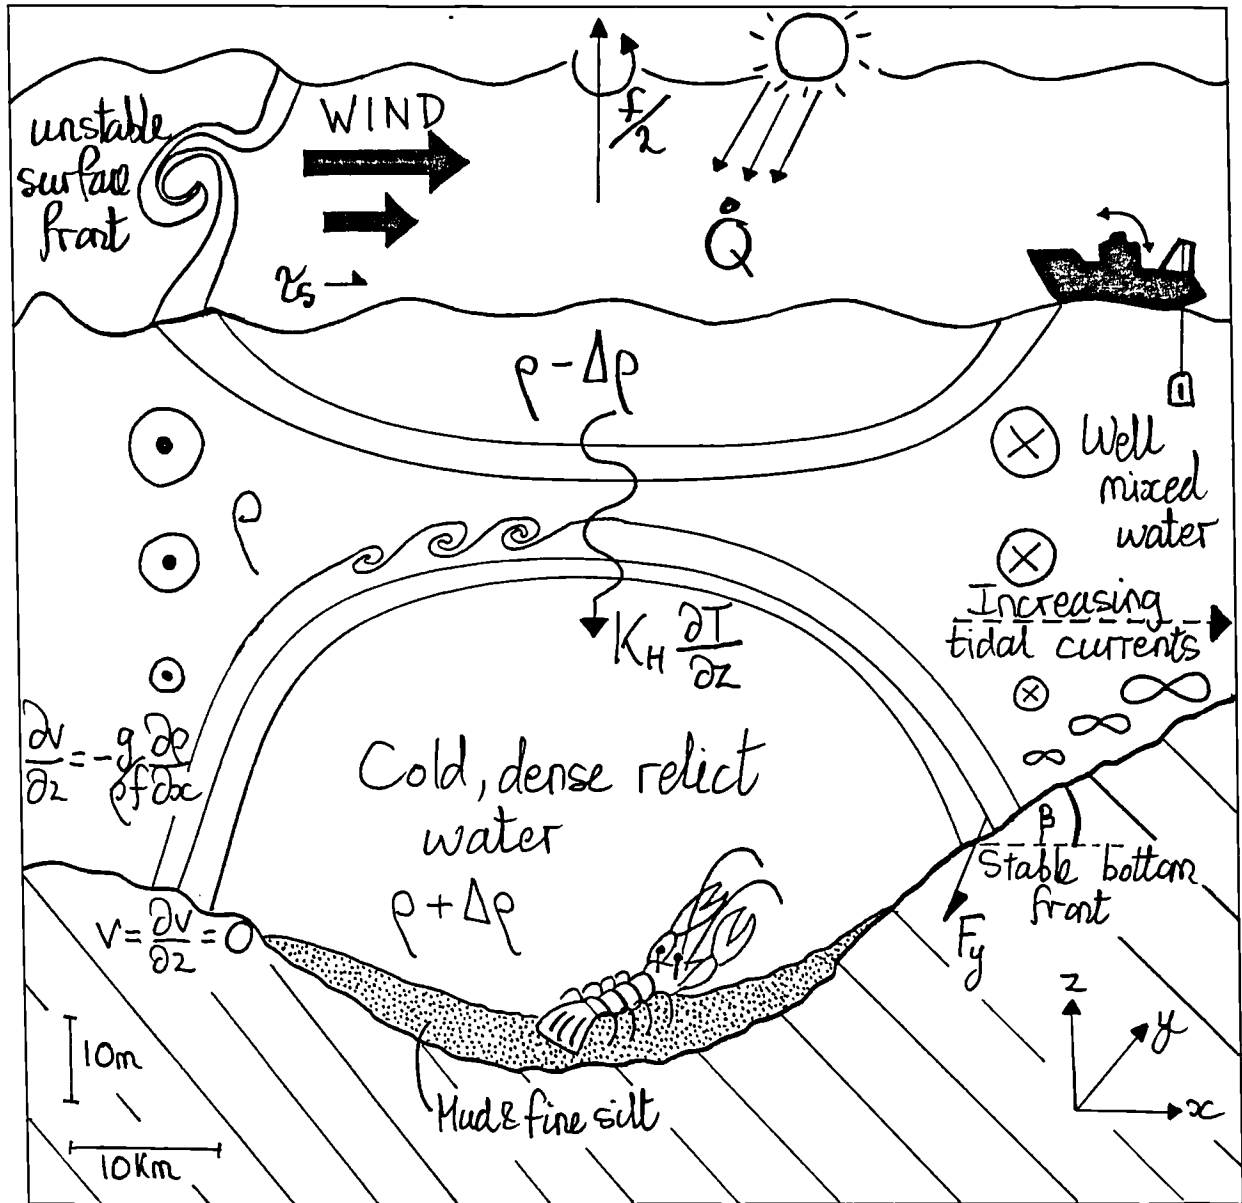 unstable
surface
front
WIND
τs
f/2
Q̇
ρ - Δρ
ρ
Well
mixed
water
Increasing
tidal currents
K_H ∂T/∂z
∂v/∂z = -g/ρf ∂ρ/∂x
Cold, dense relict
water
ρ + Δρ
β
Stable bottom
front
V = ∂v/∂z = 0
F_y
z
y
x
10m
Mud & fine silt
10Km